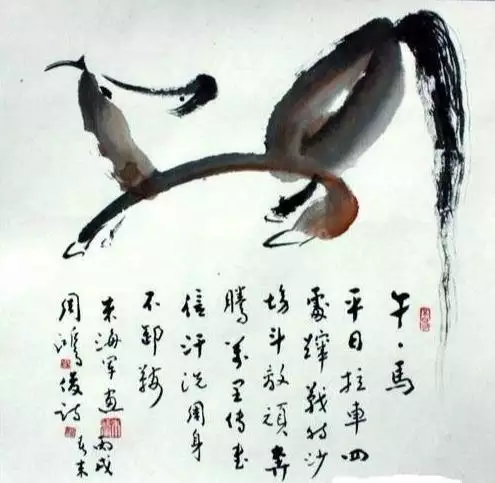 午·馬
平日拉車四
處蹿戰時沙
場斗敵頑奔
騰萬里傳書
信汗洗周身
不卸鞍
東海軍畫丙戌
周鴻俊詩春末